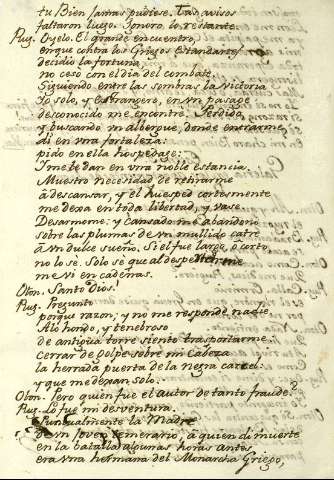 tu Bien jamas pudiese. Tad avisos
faltaron luego. Ignoro lo restante.
Rug. Oyelo. El grande encuentro,
en que contra los Griegos Estandartes
decidio la fortuna,
no ceso con el dia del combate.
Siguiendo entre las sombras la Victoria
Yo solo, y Estrangero, en vn parage
desconocido me encontrè. Perdido,
y buscando vn albergue, donde entrarme,
di en vna fortaleza:
pido en ella hospedage:
Y me te dan en vna noble estancia.
Muestro necesidad de retirarme
à descansar, y el huesped cortesmente
me dexa en toda libertad, y vase.
Desarmome: y cansado me abandono
sobre las plumas de vn mullido catre
à vn dulce sueño. Si el fue largo, ò corto
no lo sè. Solo sè que al despertarme
me vi en cadenas.
Oton. Santo Dios!
Rug. Pregunto
porque razon; y no me responde nadie
Alo hondo, y tenebroso
de antigua torre siento trasportarme:
cerrar de golpe sobre mi Cabeza
la herrada puerta de la negra carcel:
y que me dexan solo.
Oton. Pero quièn fue el autor de tanto fraude?
Rug. Lo fue mi desventura.
Puntualmente la Madre
de vn Joven temerario, à quien di muerte
en la batalla algunas horas antes,
era vna hermana del Monarcha Griego,